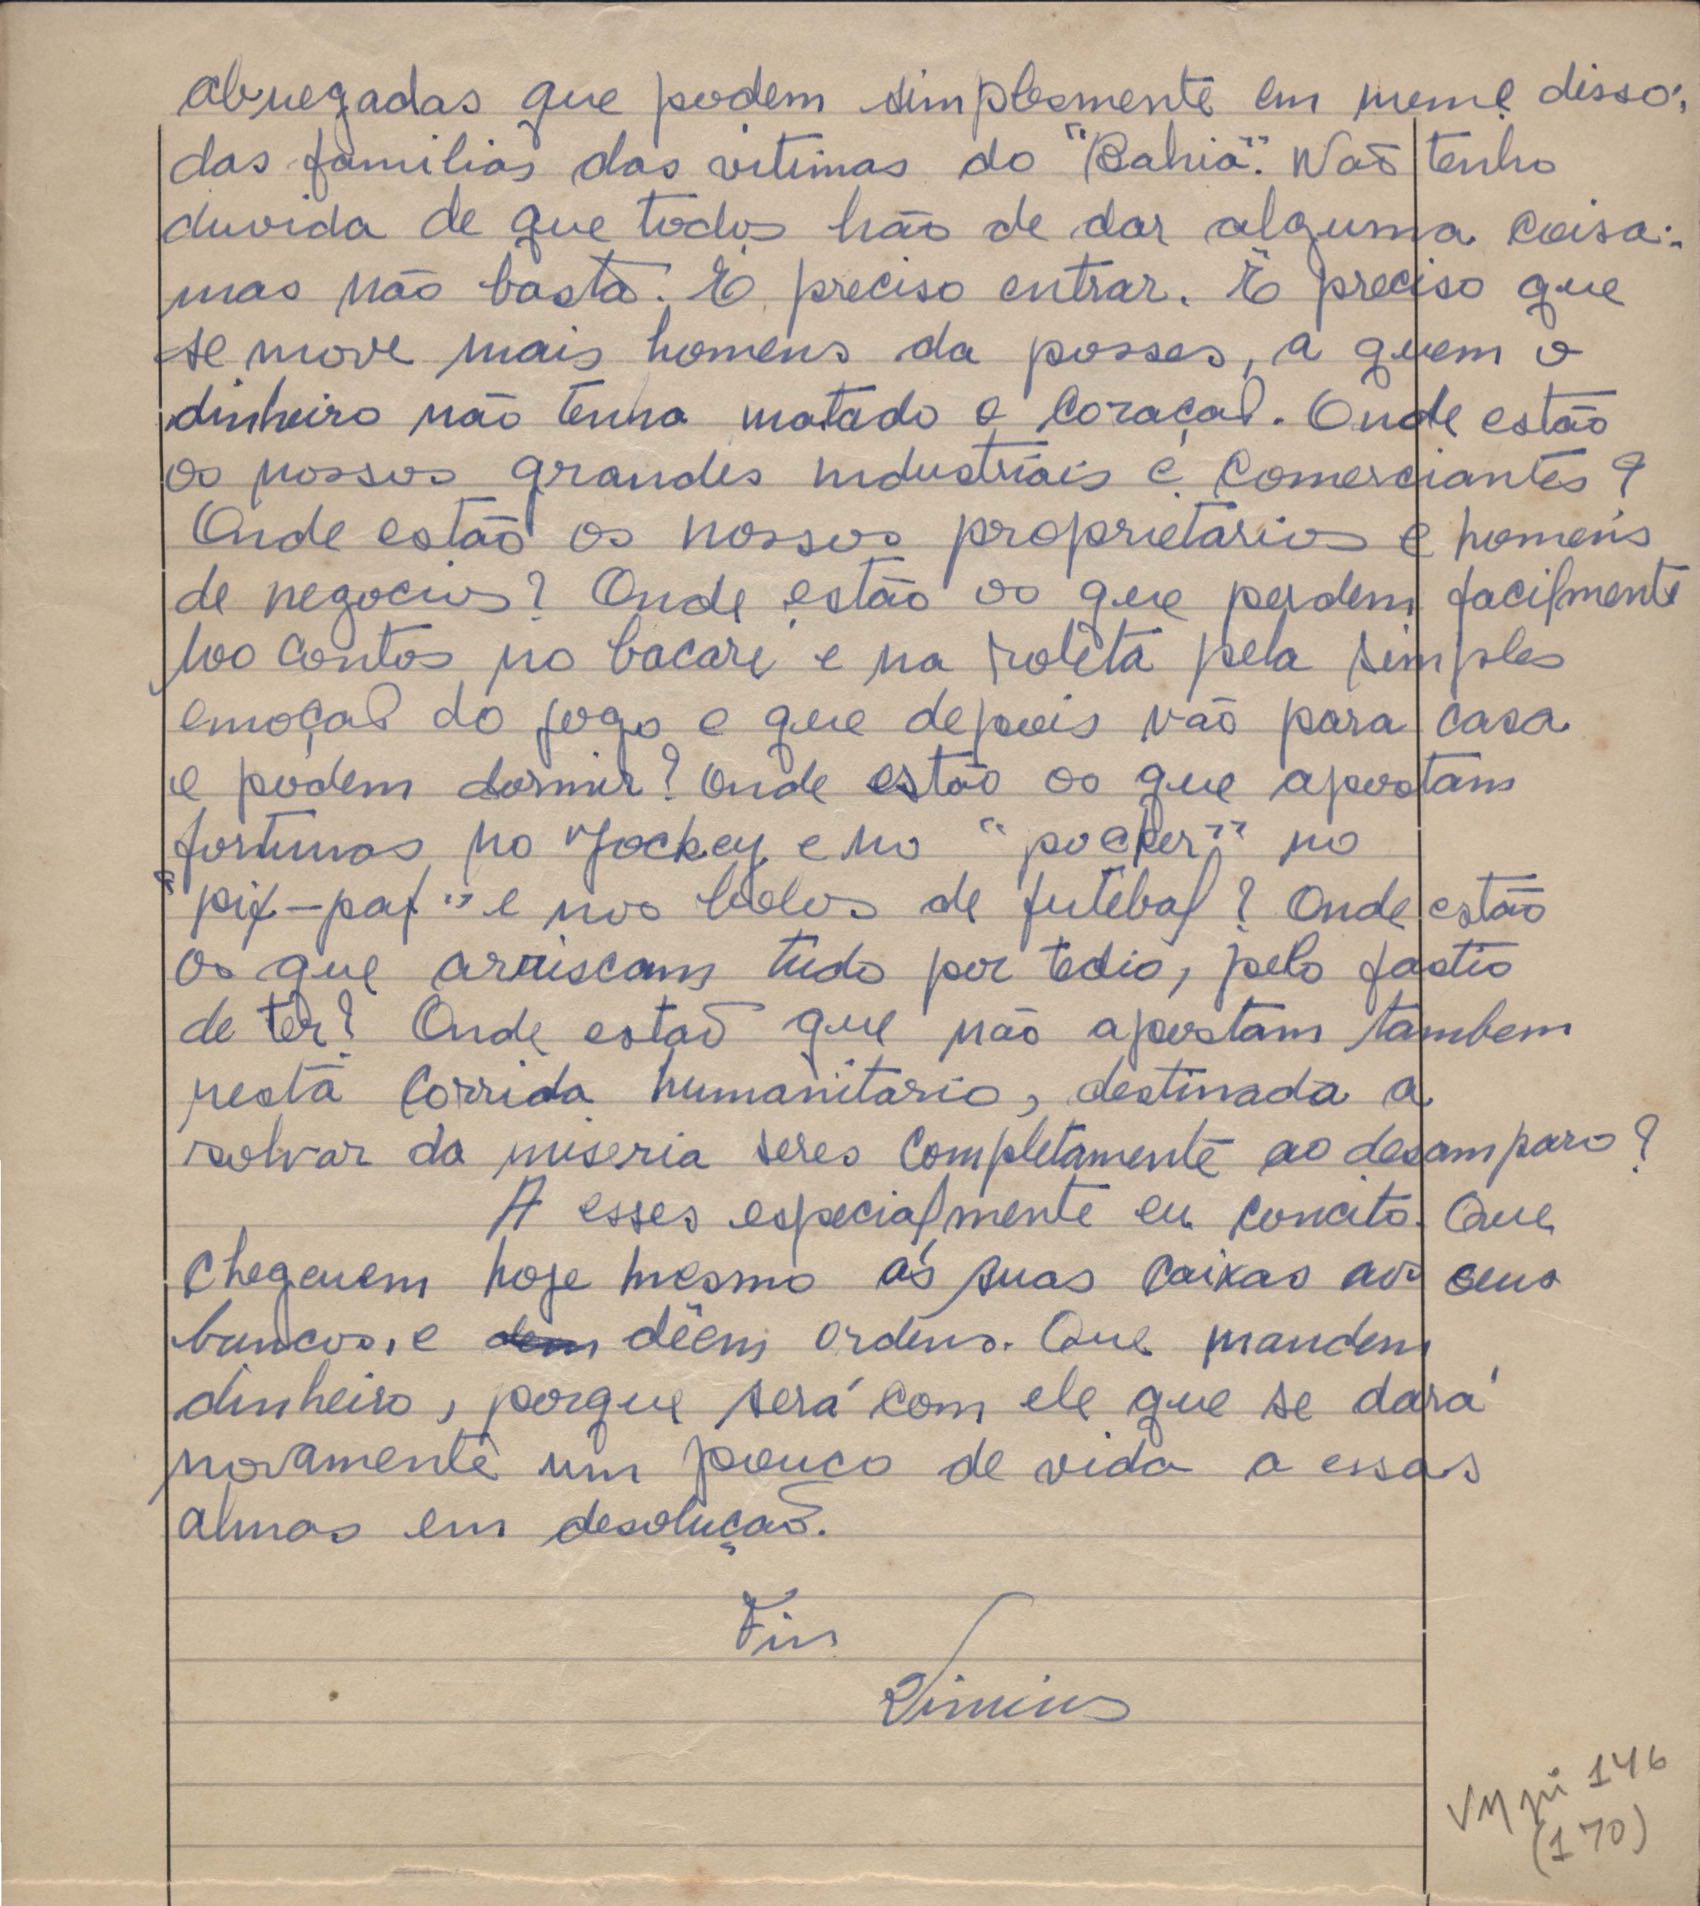 abnegadas que podem simplesmente em nome disso:
das familias das vitimas do "Bahia". Não tenho
duvida de que todos hão de dar alguma coisa:
mas não basta. É preciso entrar. É preciso que
se move mais homens da posses, a quem o
dinheiro não tenha matado o coração. Onde estão
os nossos grandes industriais e comerciantes?
Onde estão os nossos proprietarios e homens
de negocios? Onde estão os que perdem facilmente
100 contos no bacará e na roleta pela simples
emoção do jogo e que depois vão para casa
e podem dormir? Onde estão os que apostam
fortunas no "Jockey e no "pocker" no
"pif-paf" e nos bolos de futebol? Onde estão
os que arriscam tudo por tedio, pelo fastio
de ter? Onde estão que não apostam tambem
nesta corrida humanitario, destinada a
salvar da miseria seres completamente ao desamparo?
A esses especialmente eu concito. Que
cheguem hoje mesmo ás suas caixas aos seus
bancos, e dem dêem ordens. Que mandem
dinheiro, porque será com ele que se dará
novamente um pouco de vida a essas
almas em desolução.
Fim
Vinicius
VM pi 146
(170)